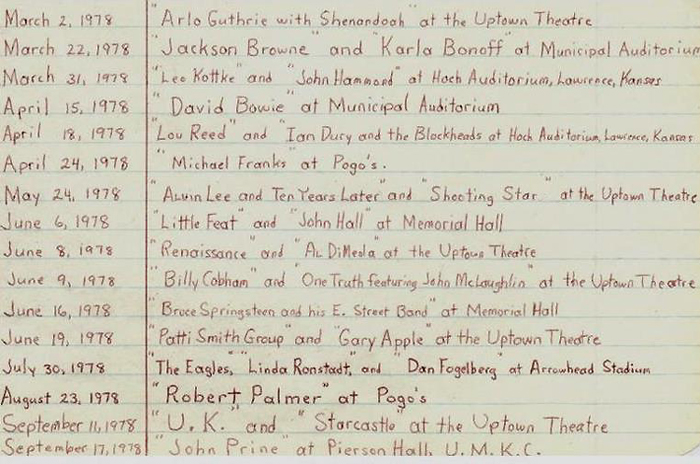 March 2, 1978 "Arlo Guthrie with Shenandoah" at the Uptown Theatre
March 22, 1978 "Jackson Browne" and "Karla Bonoff" at Municipal Auditorium
March 31, 1978 "Leo Kottke" and "John Hammond" at Hoch Auditorium, Lawrence, Kansas
April 15, 1978 "David Bowie" at Municipal Auditorium
April 18, 1978 "Lou Reed" and "Ian Dury and the Blockheads at Hoch Auditorium, Lawrence, Kansas
April 24, 1978 "Michael Franks" at Pogo's.
May 24, 1978 "Alvin Lee and Ten Years Later" and "Shooting Star" at the Uptown Theatre
June 6, 1978 "Little Feat" and "John Hall" at Memorial Hall
June 8, 1978 "Renaissance" and "Al DiMeola" at the Uptown Theatre
June 9, 1978 "Billy Cobham" and "One Truth featuring John McLaughlin" at the Uptown Theatre
June 16, 1978 "Bruce Springsteen and his E. Street Band" at Memorial Hall
June 19, 1978 "Patti Smith Group" and "Gary Apple" at the Uptown Theatre
July 30, 1978 "The Eagles," "Linda Ronstadt", and "Dan Fogelberg" at Arrowhead Stadium
August 23, 1978 "Robert Palmer" at Pogo's
September 11, 1978 "U.K." and "Starcastle" at the Uptown Theatre
September 17, 1978 "John Prine" at Pierson Hall, U.M.K.C.